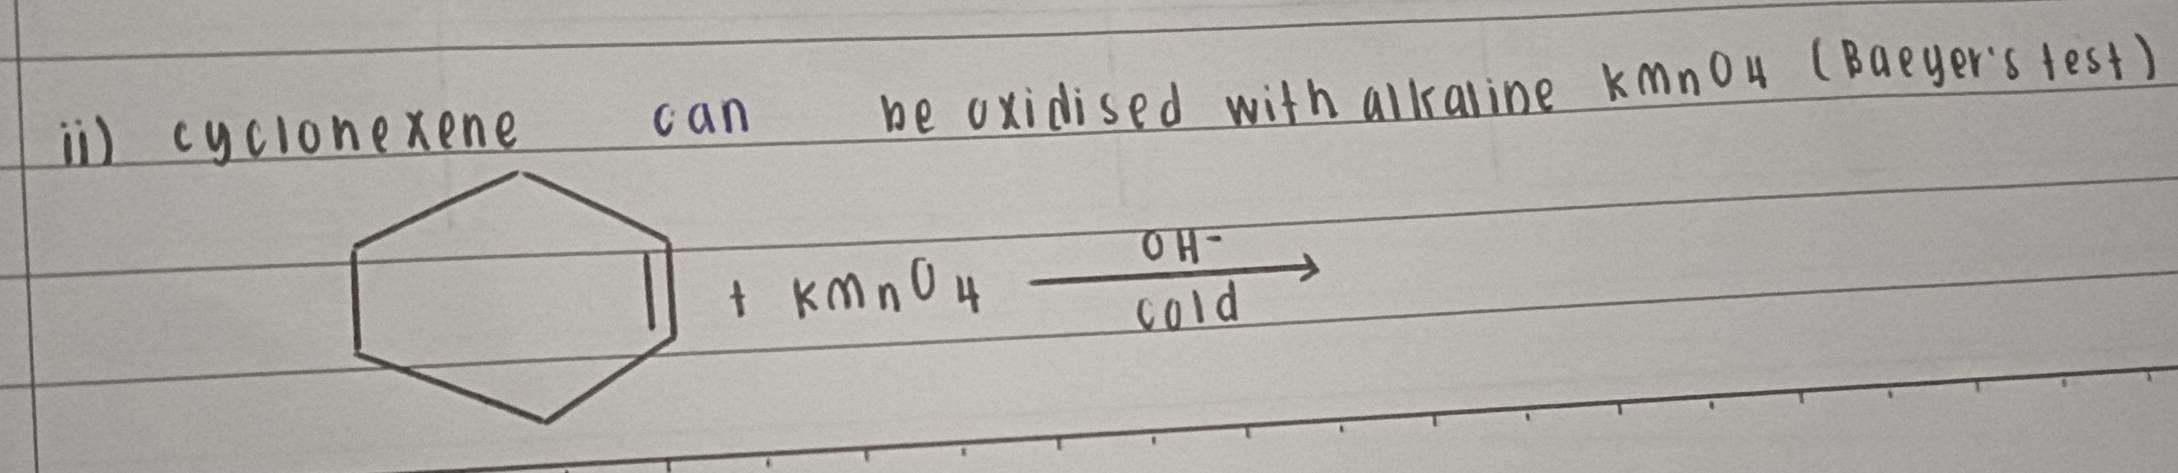 ii) cyclohexene can be oxidised with alkaline KMnO4 (Baeyer's test)
+ KMnO4 OH-
cold